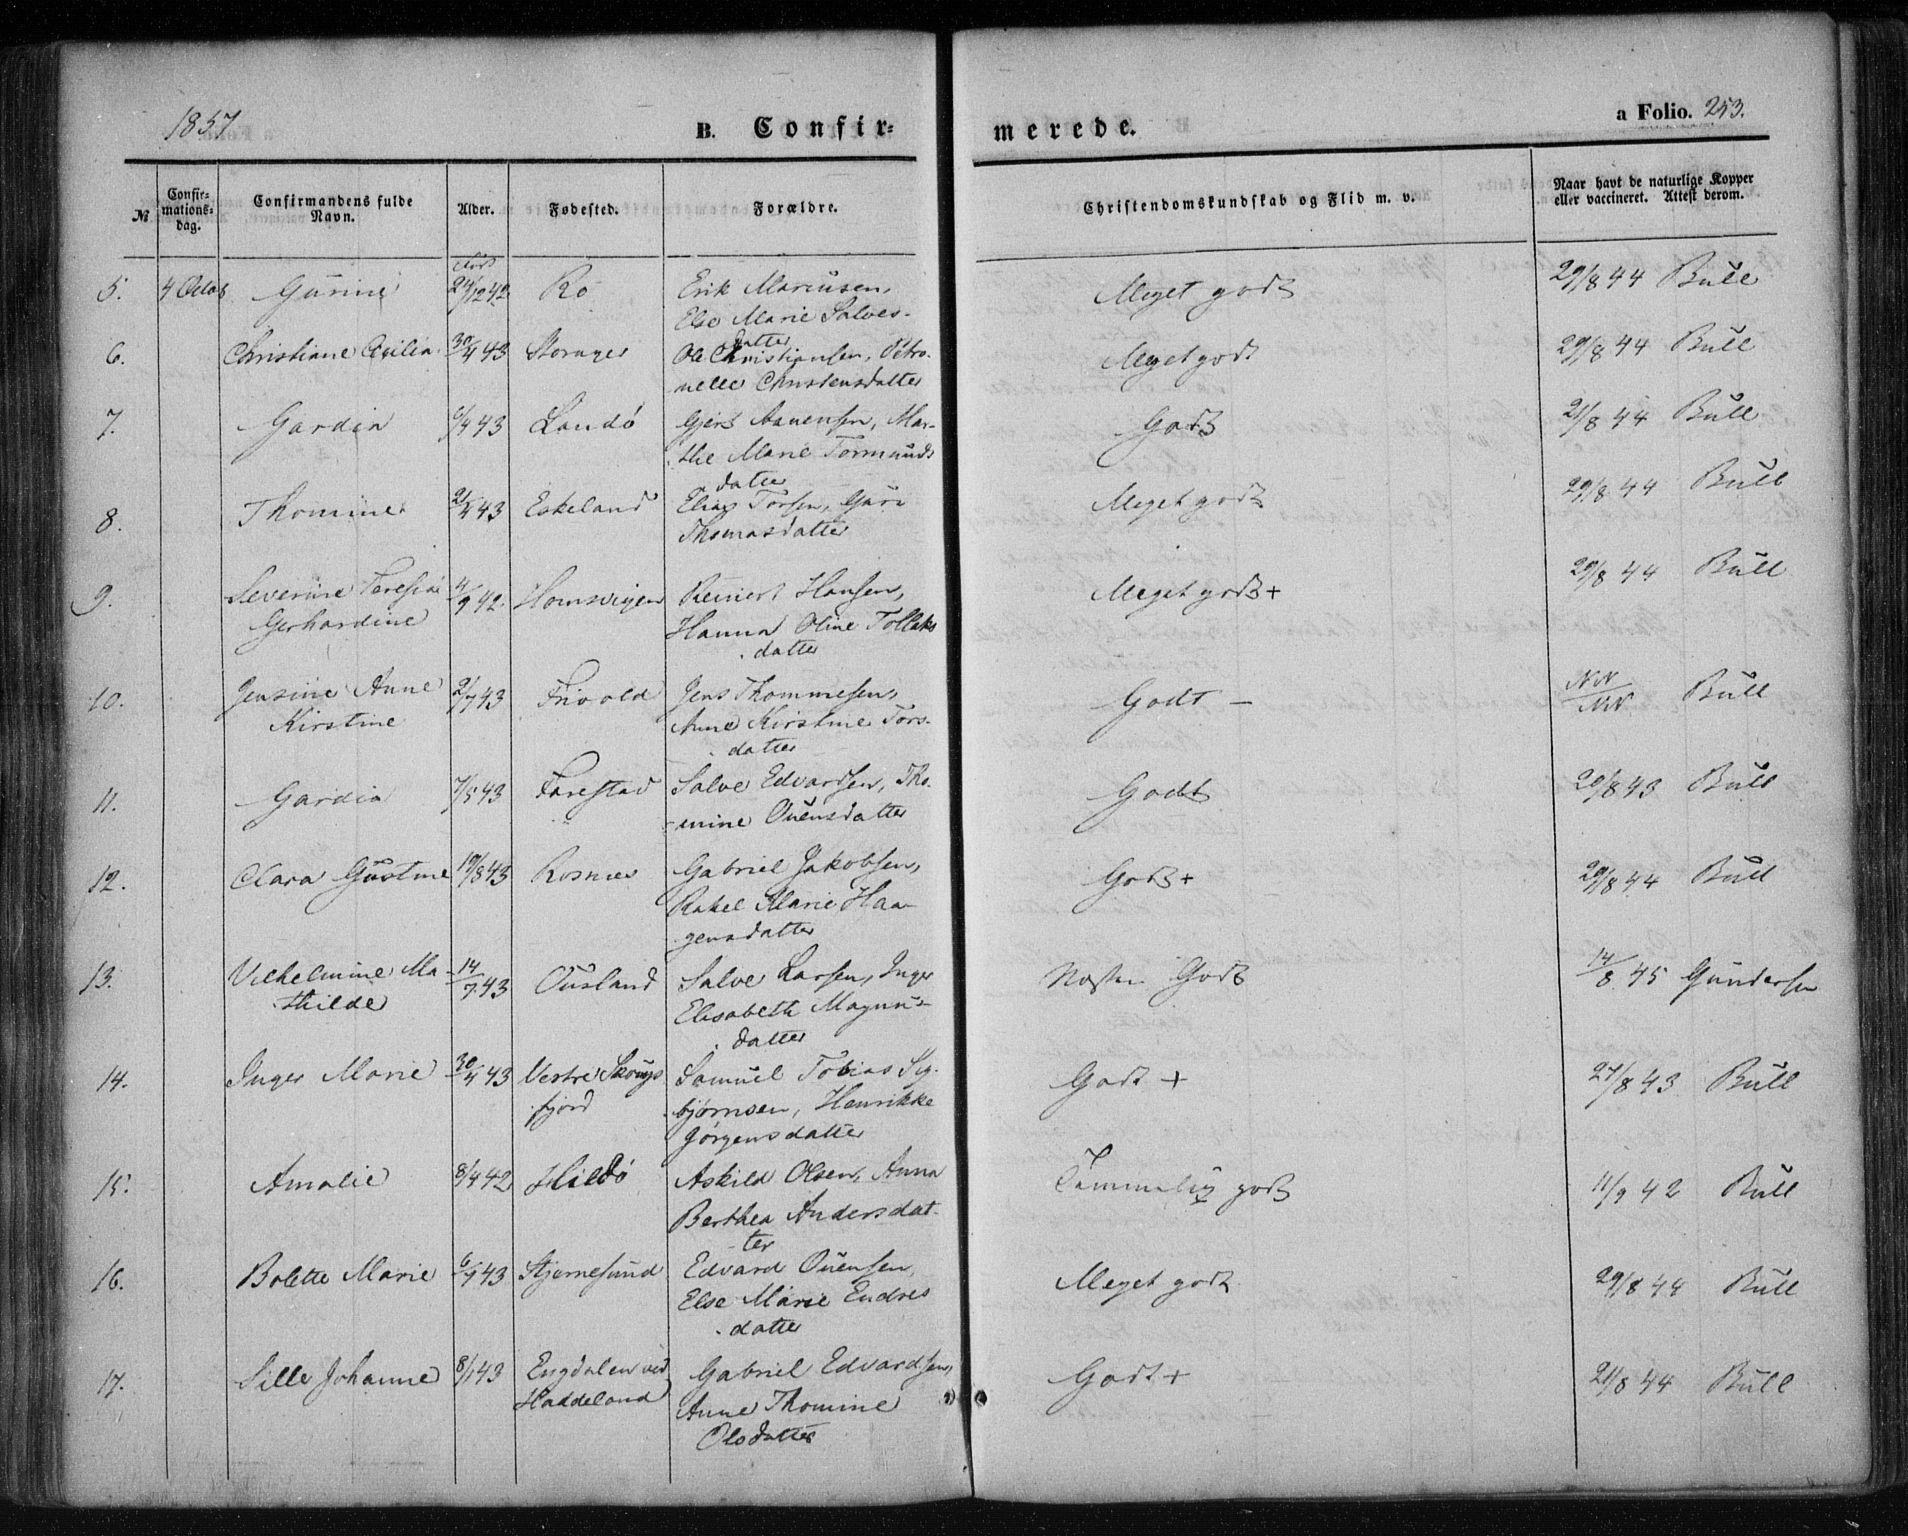 1857 B. Confir= merede. a Folio. 253.
№ Confir=mations=dag. Confirmandens fulde Navn. Alder. Fødested. Forældre. Christendomskundskab og Flid m. v. Naar havt de naturlige Kopper eller vaccineret. Attest derom.
5. 4 Octob Gurine 24/12 42 Rö Erik Mareusen, Meget godt 29/8 44 Bull
Else Marie Salves-
datter
6. Christiane Cecilia 30/4 43 Ole Christiansen, Petro- Meget godt 29/8 44 Bull
nelle Christensdatter
7. Gardia 6/4 43 Landö Gjers Aanensen, Mar- Godt 21/8 44 Bull
the Marie Tormunds
datter
8. Thomine 2/4 43 Eskeland Elias Torsen, Guri Meget godt 29/8 44 Bull
Thomasdatter
9. Severine Teresie 4/9 42 Homsvigen Reinert Hansen, Meget godt + 29/8 44 Bull
Gerhardine Hanna Oline Tollaks
datter
10. Jensine Anne 2/7 43 Frivold Jens Thommesen, Godt - NN/NN Bull
Kirstine Anne Kirstine Tors-
datter
11. Gardia 7/5 43 Farestad Salve Edvardsen, Tho- Godt 26/8 43 Bull
mine Ouensdatter
12. Clara Gustine 19/8 43 Rosnes Gabriel Jakobsen, Godt + 29/8 44 Bull
Rakel Marie Haa-
gensdatter
13. Vilhelmine Ma- 14/7 43 Ousland Salve Larsen, Inger Næsten Godt 14/8 45 Gundersen
thilde Elisabeth Magnus-
datter
14. Inger Marie 30/4 43 Vestre Skougs Samuel Tobias Sig- Godt + 27/8 43 Bull
fjord bjørnsen, Henrikke
Jörgensdatter
15. Amalie 8/4 42 Hildö Askild Olsen, Anna Temmelig godt 11/9 42 Bull
Berthea Andersdat-
ter
16. Bolette Marie 6/7 43 Stjernesund Edvard Ouensen, Meget godt 29/8 44 Bull
Else Marie Endres
datter
17. Sille Johanne 8/1 43 Engdalen ved Gabriel Edvardsen, Godt + 21/8 44 Bull
Haddeland Anne Thomine
Olsdatter